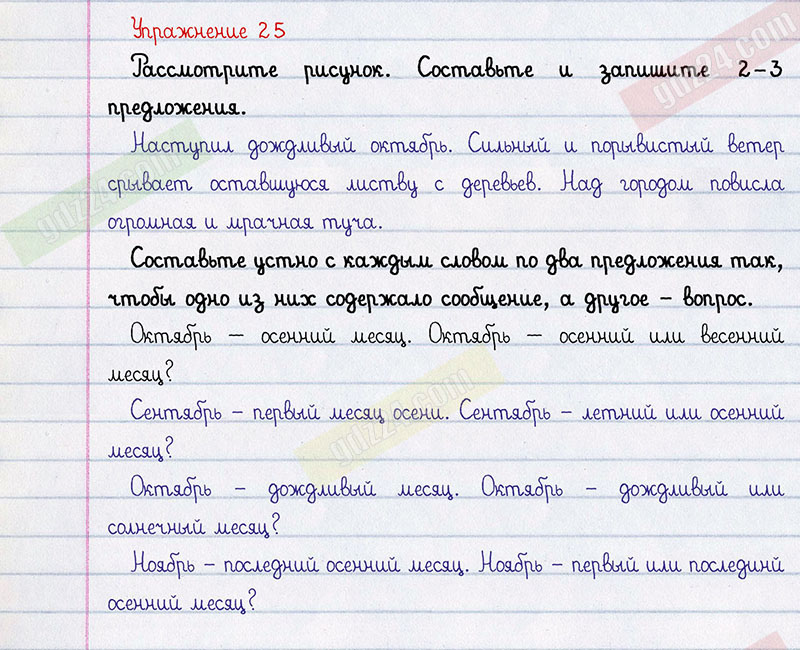 Упражнение 25
Рассмотрите рисунок. Составьте и запишите 2-3
предложения.
Наступил дождливый октябрь. Сильный и порывистый ветер
срывает оставшуюся листву с деревьев. Над городом повисла
огромная и мрачная туча.
Составьте устно с каждым словом по два предложения так,
чтобы одно из них содержало сообщение, а другое – вопрос.
Октябрь — осенний месяц. Октябрь — осенний или весенний
месяц?
Сентябрь – первый месяц осени. Сентябрь – летний или осенний
месяц?
Октябрь – дождливый месяц. Октябрь – дождливый или
солнечный месяц?
Ноябрь – последний осенний месяц. Ноябрь – первый или послединй
осенний месяц?
gdz24.com
gdz24.com
gdz24.com